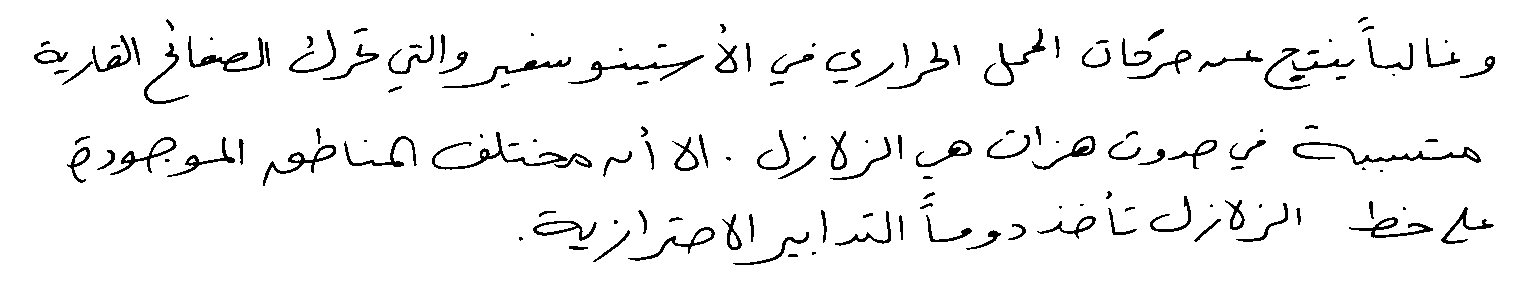 وغالباً ينتج عن حركات الحمل الحراري في الأستينوسفير والتي تحرك الصفائح القارية
متسببة في حدوث هزات هي الزلازل . الا أن مختلف المناطق الموجودة
على خط الزلازل تأخذ دوماً التدابير الاحترازية .